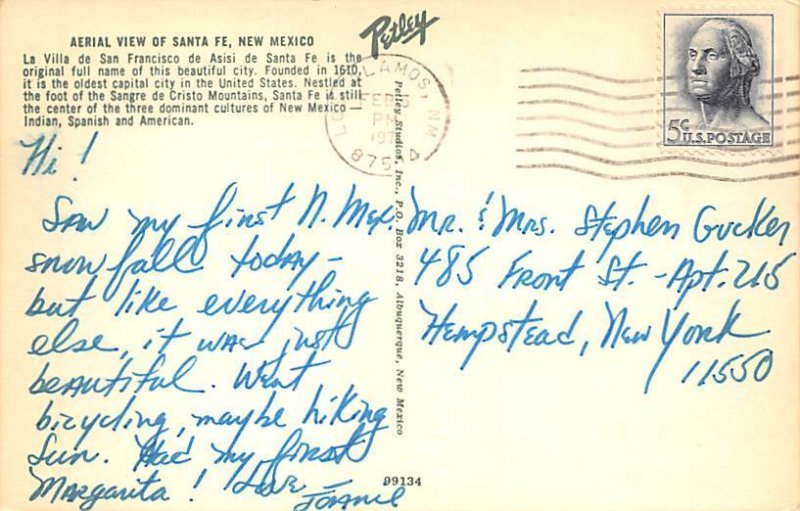 AERIAL VIEW OF SANTA FE, NEW MEXICO
La Villa de San Francisco de Asisi de Santa Fe is the
original full name of this beautiful city. Founded in 1610,
it is the oldest capital city in the United States. Nestled at
the foot of the Sangre de Cristo Mountains, Santa Fe is still
the center of the three dominant cultures of New Mexico —
Indian, Spanish and American.
Petley
LOS ALAMOS, NM
FEB
PM
5¢ U.S. POSTAGE
Hi!
Saw my first N. Mex.
snowfall today -
but like everything
else, it was just
beautiful. Went
bicycling, maybe hiking
Sun. Had my first
Margarita! Love
Mr. & Mrs. Stephen Gucker
485 Front St. - Apt. 215
Hempstead, New York
11550
Petley Studios, Inc., P.O. Box 3218, Albuquerque, New Mexico
99134